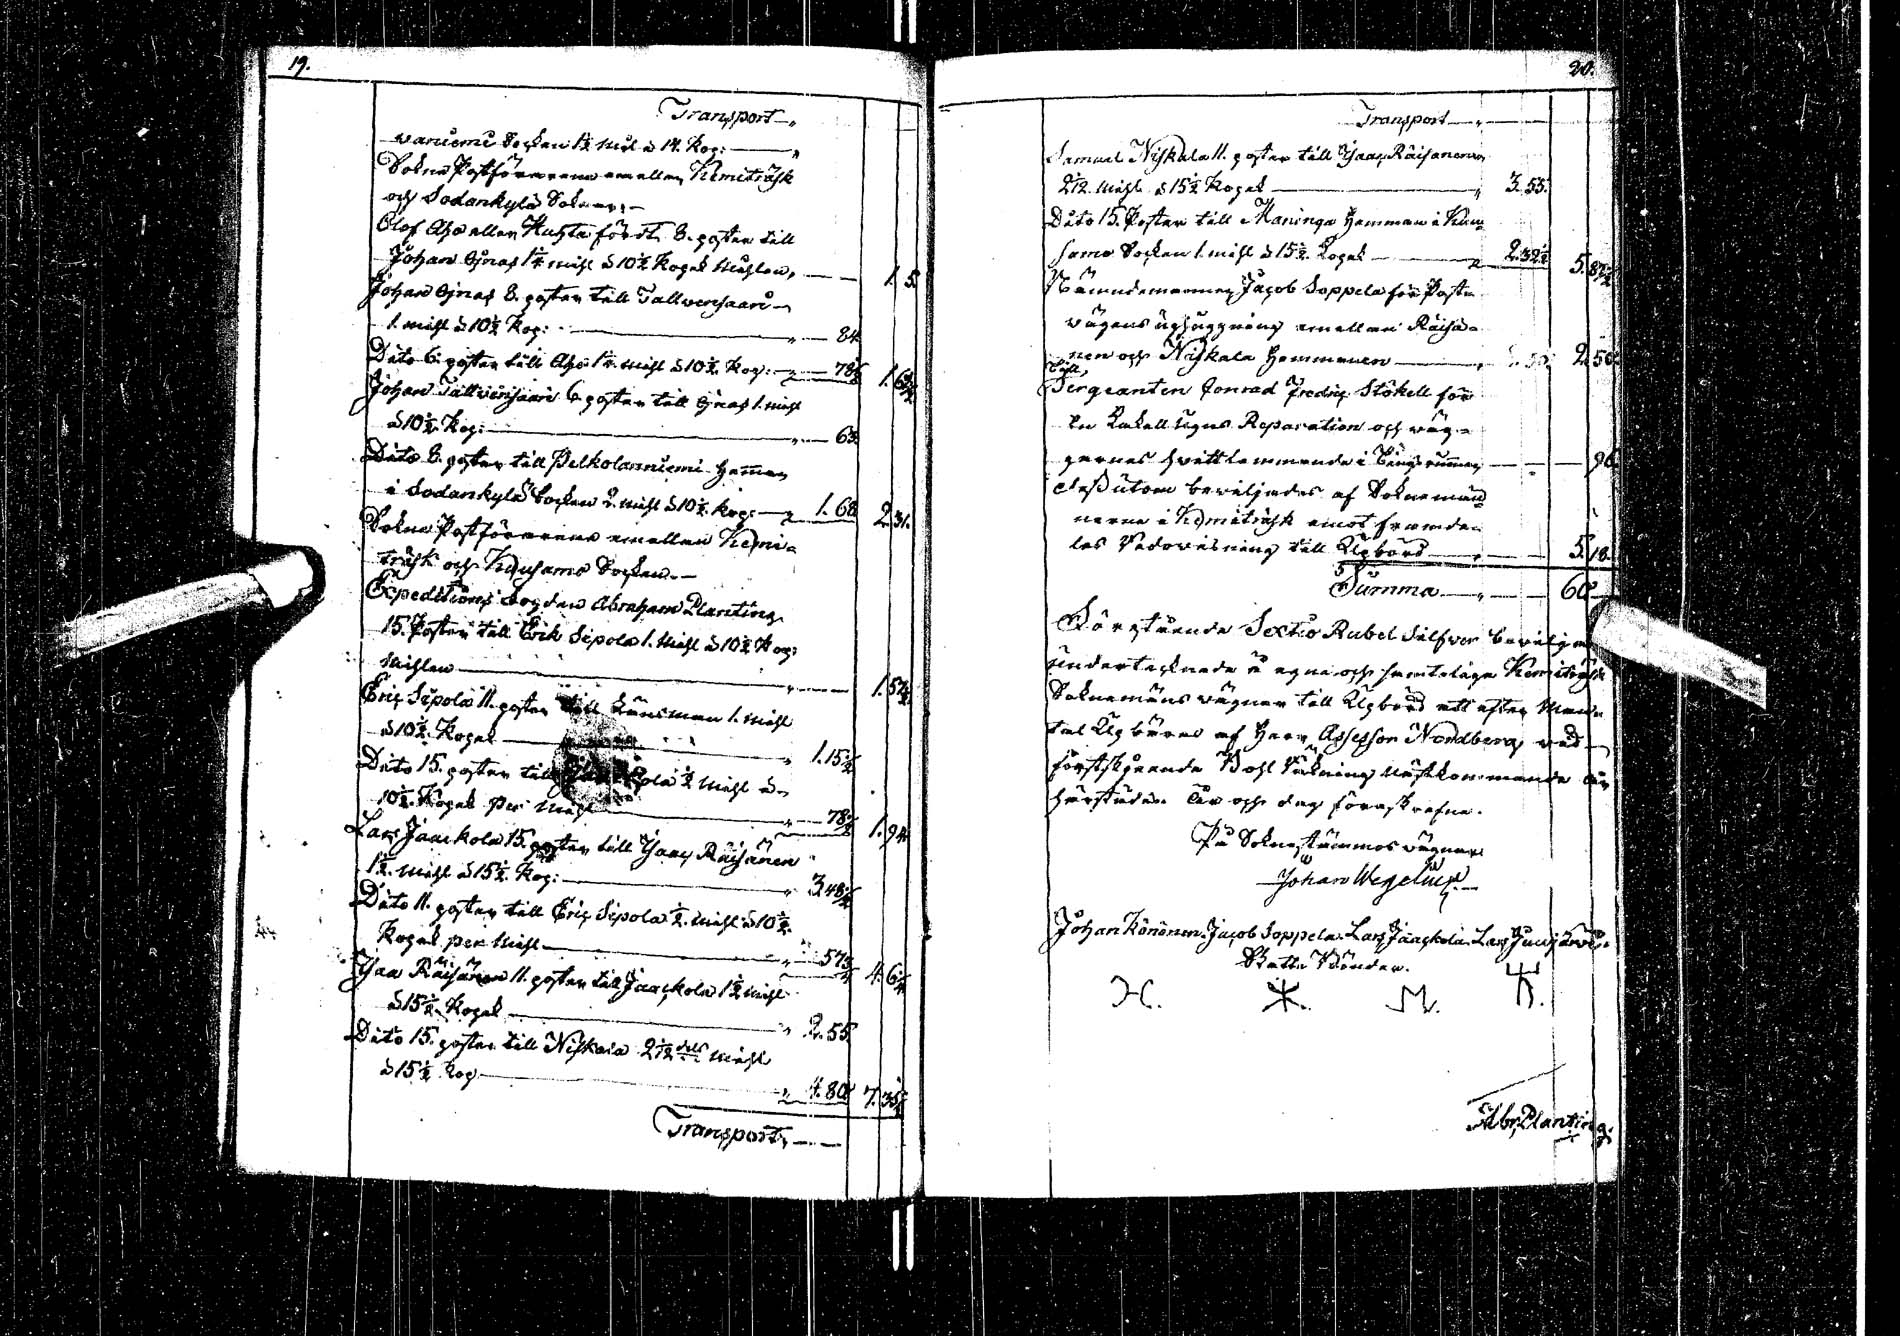 19.
Transport
waniemi Socken 1½ mihl à 14. Kop:
Sokne Postförarena emellan Kemiträsk
och Sodankylä Soknar,
Olof Aho eller Huhta fördt 8. poster till
Johan Ojnas 1¼ mihl à 10½ Kopek mihlen, 1. 5.
Johan Ojnas 8. poster till Tallvensaari
1. mihl à 10½ Kop: 84
Dito 6. poster till Aho 1¼ mihl à 10½ Kop: 78¾ 1.62¾
Johan Tallvensaari 6 poster till Ojnas 1. mihl
à 10½ Kop: 63.
Dito 8. poster till Pelkolanniemi Heman
i Sodankylä Socken 2. mihl à 10½ Kop: 1.68 2.31.
Sokne Postförarena emellan Kemi-
träsk och Kuusamo Socken.
Expeditions Fogden Abraham Planting
15. Poster till Erik Sipola 1. mihl à 10½ Kop:
mihlen 1.57½
Eric Sipola 11. poster till Länsman 1. mihl
à 10½ Kopek 1.15½
Dito 15. poster till ½ mihl à
10½ Kopek per mihl 78¾ 1.94¼
Lars Jaackola 15. poster till Isaac Räisänen
1½. mihl à 15½ Kop: 3.48¾
Dito 11. poster till Eric Sipola ½. mihl à 10½
Kopek per mihl 57¾ 4.6½
Isaa Räisänen 11. poster till Jaackola 1½ mihl
à 15½ Kopek 2.55
Dito 15. poster till Niskala 2 1/12 dels mihl
à 15½ Kop 4.80 7.35¾
Transport
20.
Transport
Samuel Niskala 11. poster till Isaac Räisänen
2 1/12. mihl à 15½ Kopek 3.55.
Dito 15. Poster till Maninga Hemman i Kuu-
samo Socken 1. mihl à 15½. Kopek 2.32½ 5.87½
Nämndemannen Jacob Soppela för Post-
vägens uphuggning emellan Räisä-
nen och Niskala Hemmanen 2.50. 2.50.
Till,
Sergeanten Conrad Fredric Stökell för
en Kakellugns Reparation och väg-
garnes hvittlemmande i Tings rummen 96.
dessutom beviljades af Soknemän
nerne i Kemiträsk emot framde-
les Redovisning till Upbörd 5.18.
Summa 60
Förestående Sextio Rubel Silfver bevilja
undertecknade å egne och samtelige Kemiträsk
Soknemäns vägnar till Upbörd att efter Man-
tal Upbäras af Herr Assessor Nordberg wid
förstskjeende Wohl Räkning nästkommande år
härstädes. År och dag föreskrefne.
På Soknestämmos vägnar
Johan Wegelius.
Johan Könönen. Jacob Soppela. Lars Jaackola. Lars Juujärvi.
Skatte Bönder.
Abr. Planting.